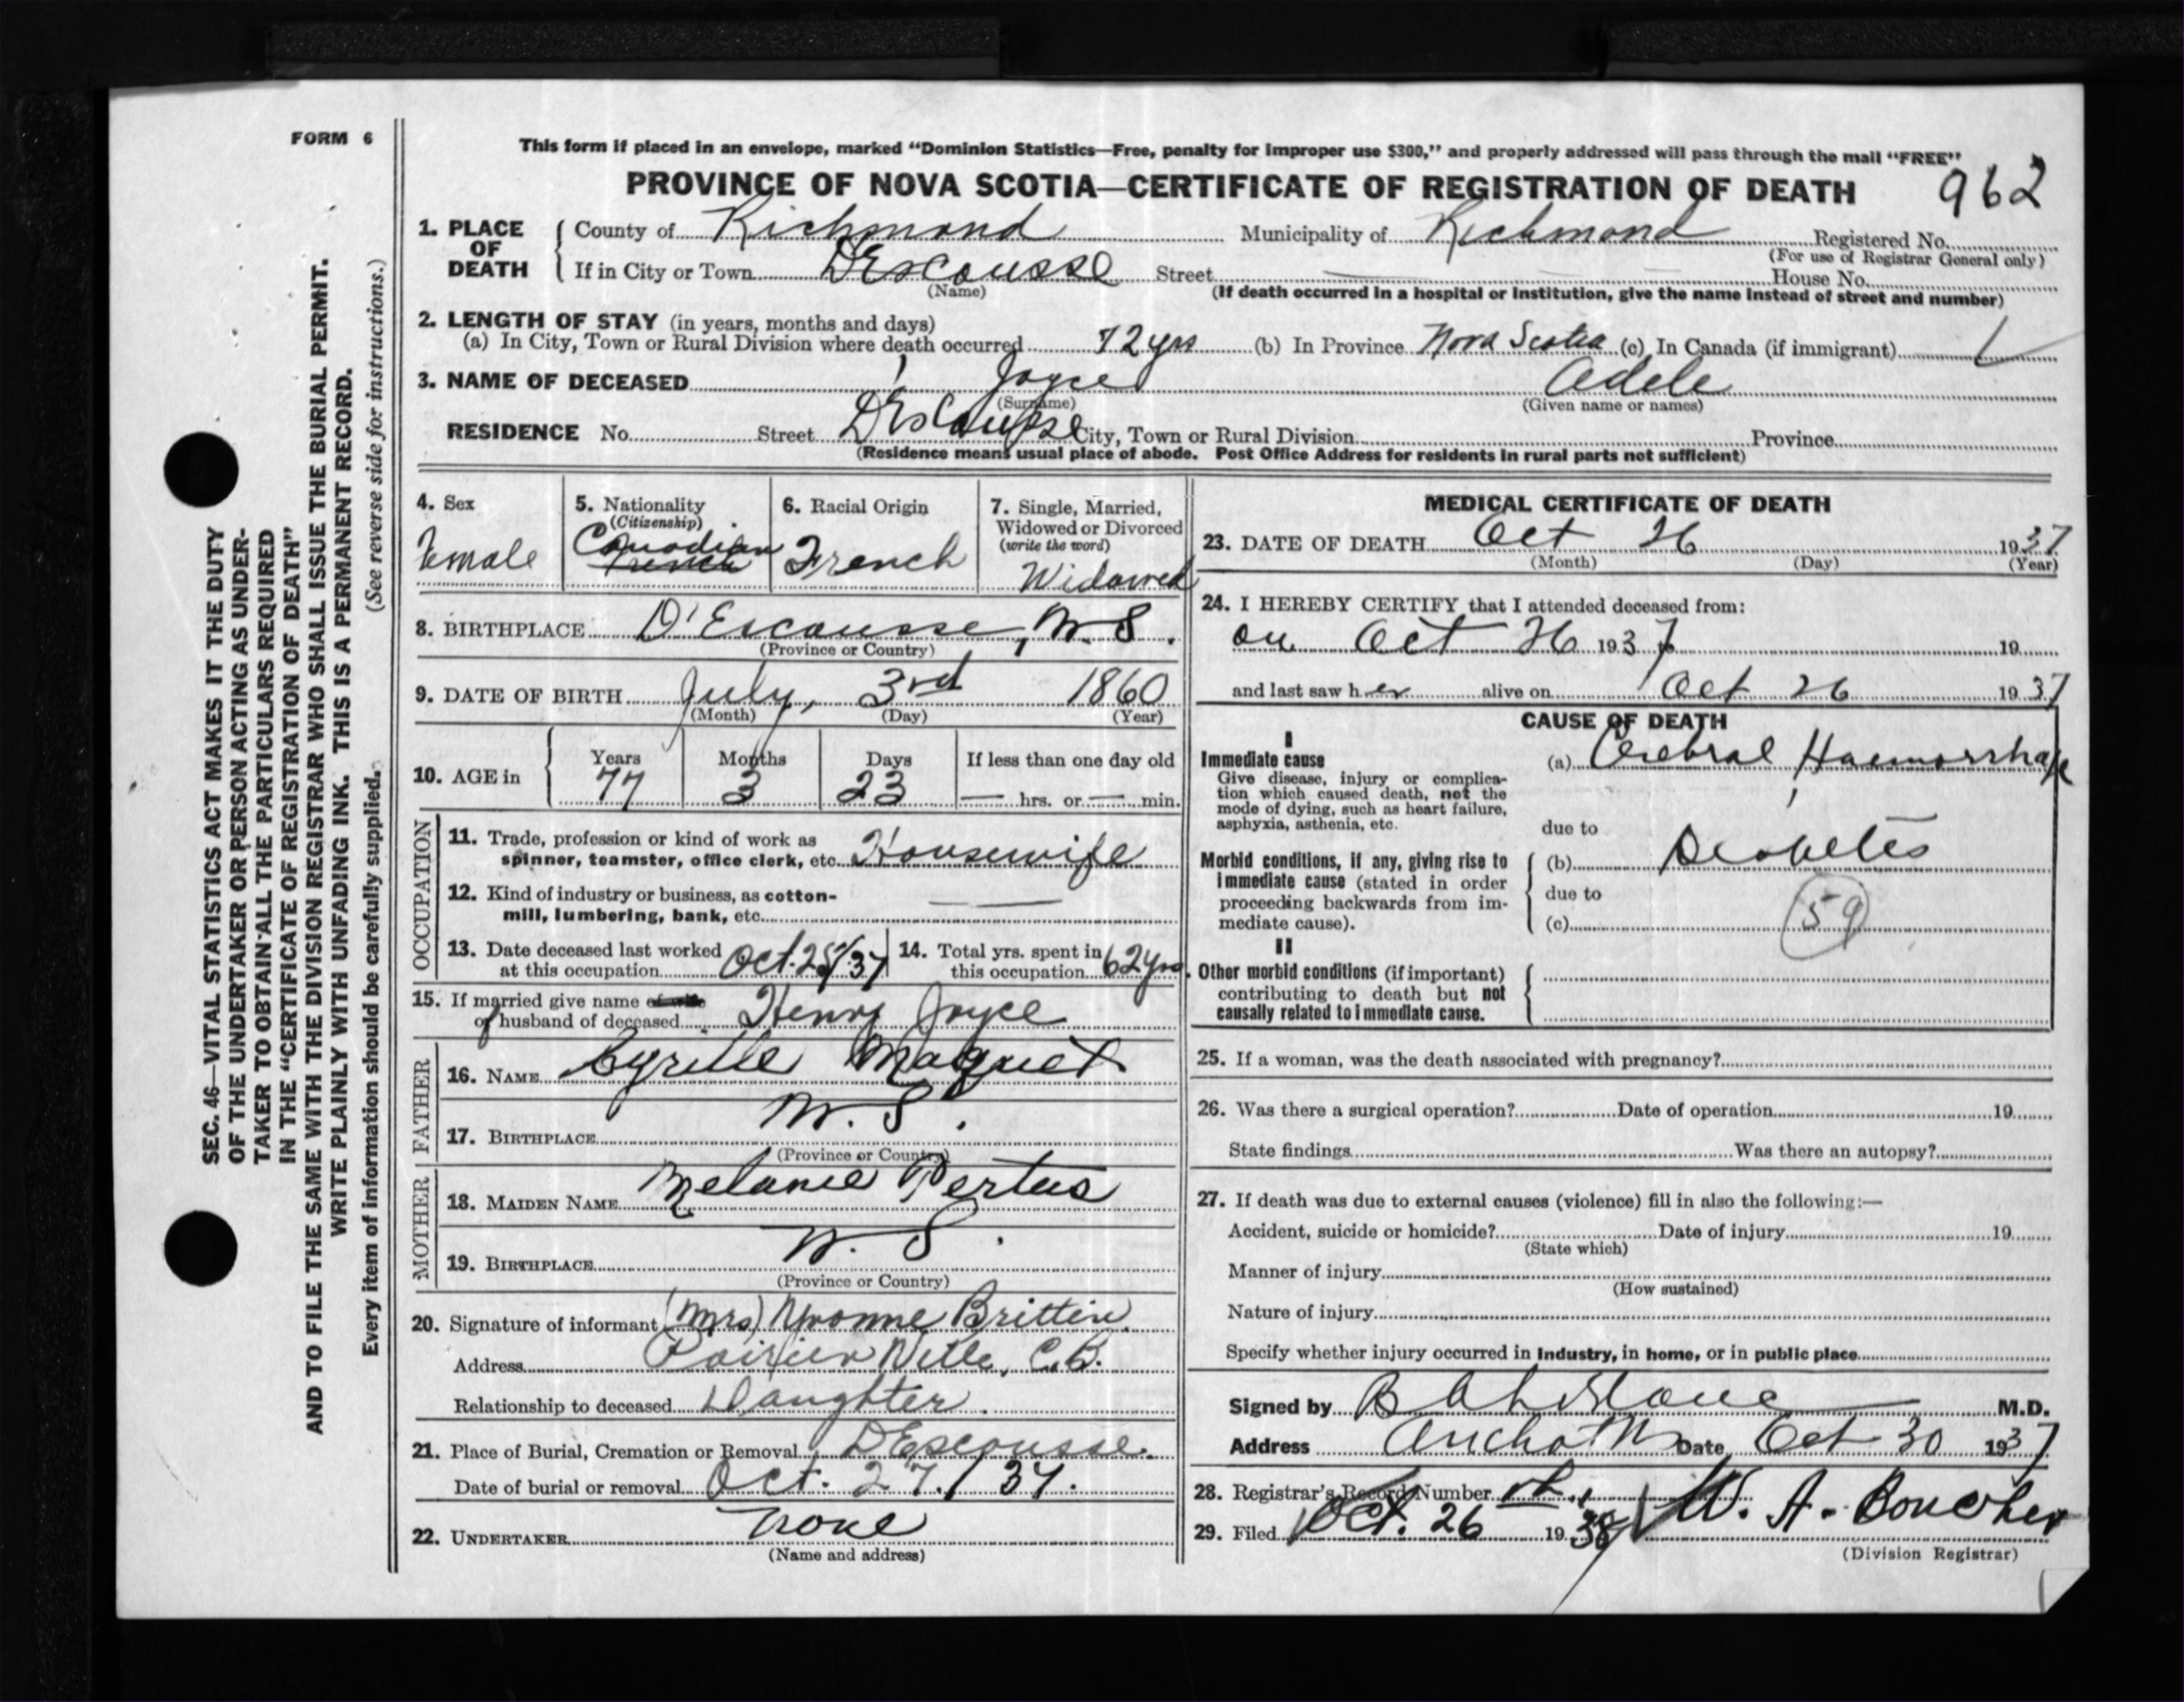 FORM 6
This form if placed in an envelope, marked “Dominion Statistics—Free, penalty for improper use $300,” and properly addressed will pass through the mail “FREE”
PROVINCE OF NOVA SCOTIA—CERTIFICATE OF REGISTRATION OF DEATH 962
1. PLACE OF DEATH County of Richmond Municipality of Richmond Registered No.
(For use of Registrar General only)
If in City or Town D'Escousse Street House No.
(Name) (If death occurred in a hospital or institution, give the name instead of street and number)
2. LENGTH OF STAY (in years, months and days)
(a) In City, Town or Rural Division where death occurred 72 yrs (b) In Province Nova Scotia (c) In Canada (if immigrant)
3. NAME OF DECEASED Joyce Adele
(Surname) (Given name or names)
RESIDENCE No. Street D'Escousse City, Town or Rural Division Province
(Residence means usual place of abode. Post Office Address for residents in rural parts not sufficient)
4. Sex 5. Nationality 6. Racial Origin 7. Single, Married,
(Citizenship) Widowed or Divorced
(write the word)
Female Canadian French French Widowed
8. BIRTHPLACE D'Escousse, N.S.
(Province or Country)
9. DATE OF BIRTH July, 3rd 1860
(Month) (Day) (Year)
10. AGE in Years Months Days If less than one day old
77 3 23 — hrs. or — min.
OCCUPATION
11. Trade, profession or kind of work as
spinner, teamster, office clerk, etc. Housewife
12. Kind of industry or business, as cotton-
mill, lumbering, bank, etc. — —
13. Date deceased last worked at this occupation Oct. 25/37 14. Total yrs. spent in this occupation 62 yrs.
15. If married give name of wife
or husband of deceased Henry Joyce
FATHER
16. NAME Cyrille Maquet
17. BIRTHPLACE N.S.
(Province or Country)
MOTHER
18. MAIDEN NAME Melanie Pertus
19. BIRTHPLACE N.S.
(Province or Country)
20. Signature of informant (Mrs) Yvonne Brittin
Address Poirierville, C.B.
Relationship to deceased Daughter.
21. Place of Burial, Cremation or Removal D'Escousse.
Date of burial or removal Oct. 27./37.
22. UNDERTAKER None
(Name and address)
MEDICAL CERTIFICATE OF DEATH
23. DATE OF DEATH Oct 26 1937
(Month) (Day) (Year)
24. I HEREBY CERTIFY that I attended deceased from:
on Oct 26 1937 19
and last saw her alive on Oct 26 1937
CAUSE OF DEATH
I
Immediate cause (a) Cerebral Haemorrhage
Give disease, injury or complica-
tion which caused death, not the
mode of dying, such as heart failure,
asphyxia, asthenia, etc.
due to
Morbid conditions, if any, giving rise to (b) Diabetes
immediate cause (stated in order
proceeding backwards from im- due to
mediate cause). (c) 59
II
Other morbid conditions (if important)
contributing to death but not
causally related to immediate cause.
25. If a woman, was the death associated with pregnancy?
26. Was there a surgical operation? Date of operation 19
State findings Was there an autopsy?
27. If death was due to external causes (violence) fill in also the following:—
Accident, suicide or homicide? Date of injury 19
(State which)
Manner of injury
(How sustained)
Nature of injury
Specify whether injury occurred in industry, in home, or in public place
Signed by M.D.
Address Date Oct 30 1937
28. Registrar's Record Number
29. Filed Oct. 26 1938 W. A. Boucher
(Division Registrar)
SEC. 46—VITAL STATISTICS ACT MAKES IT THE DUTY
OF THE UNDERTAKER OR PERSON ACTING AS UNDER-
TAKER TO OBTAIN ALL THE PARTICULARS REQUIRED
IN THE “CERTIFICATE OF REGISTRATION OF DEATH”
AND TO FILE THE SAME WITH THE DIVISION REGISTRAR WHO SHALL ISSUE THE BURIAL PERMIT.
WRITE PLAINLY WITH UNFADING INK. THIS IS A PERMANENT RECORD.
Every item of information should be carefully supplied. (See reverse side for instructions.)